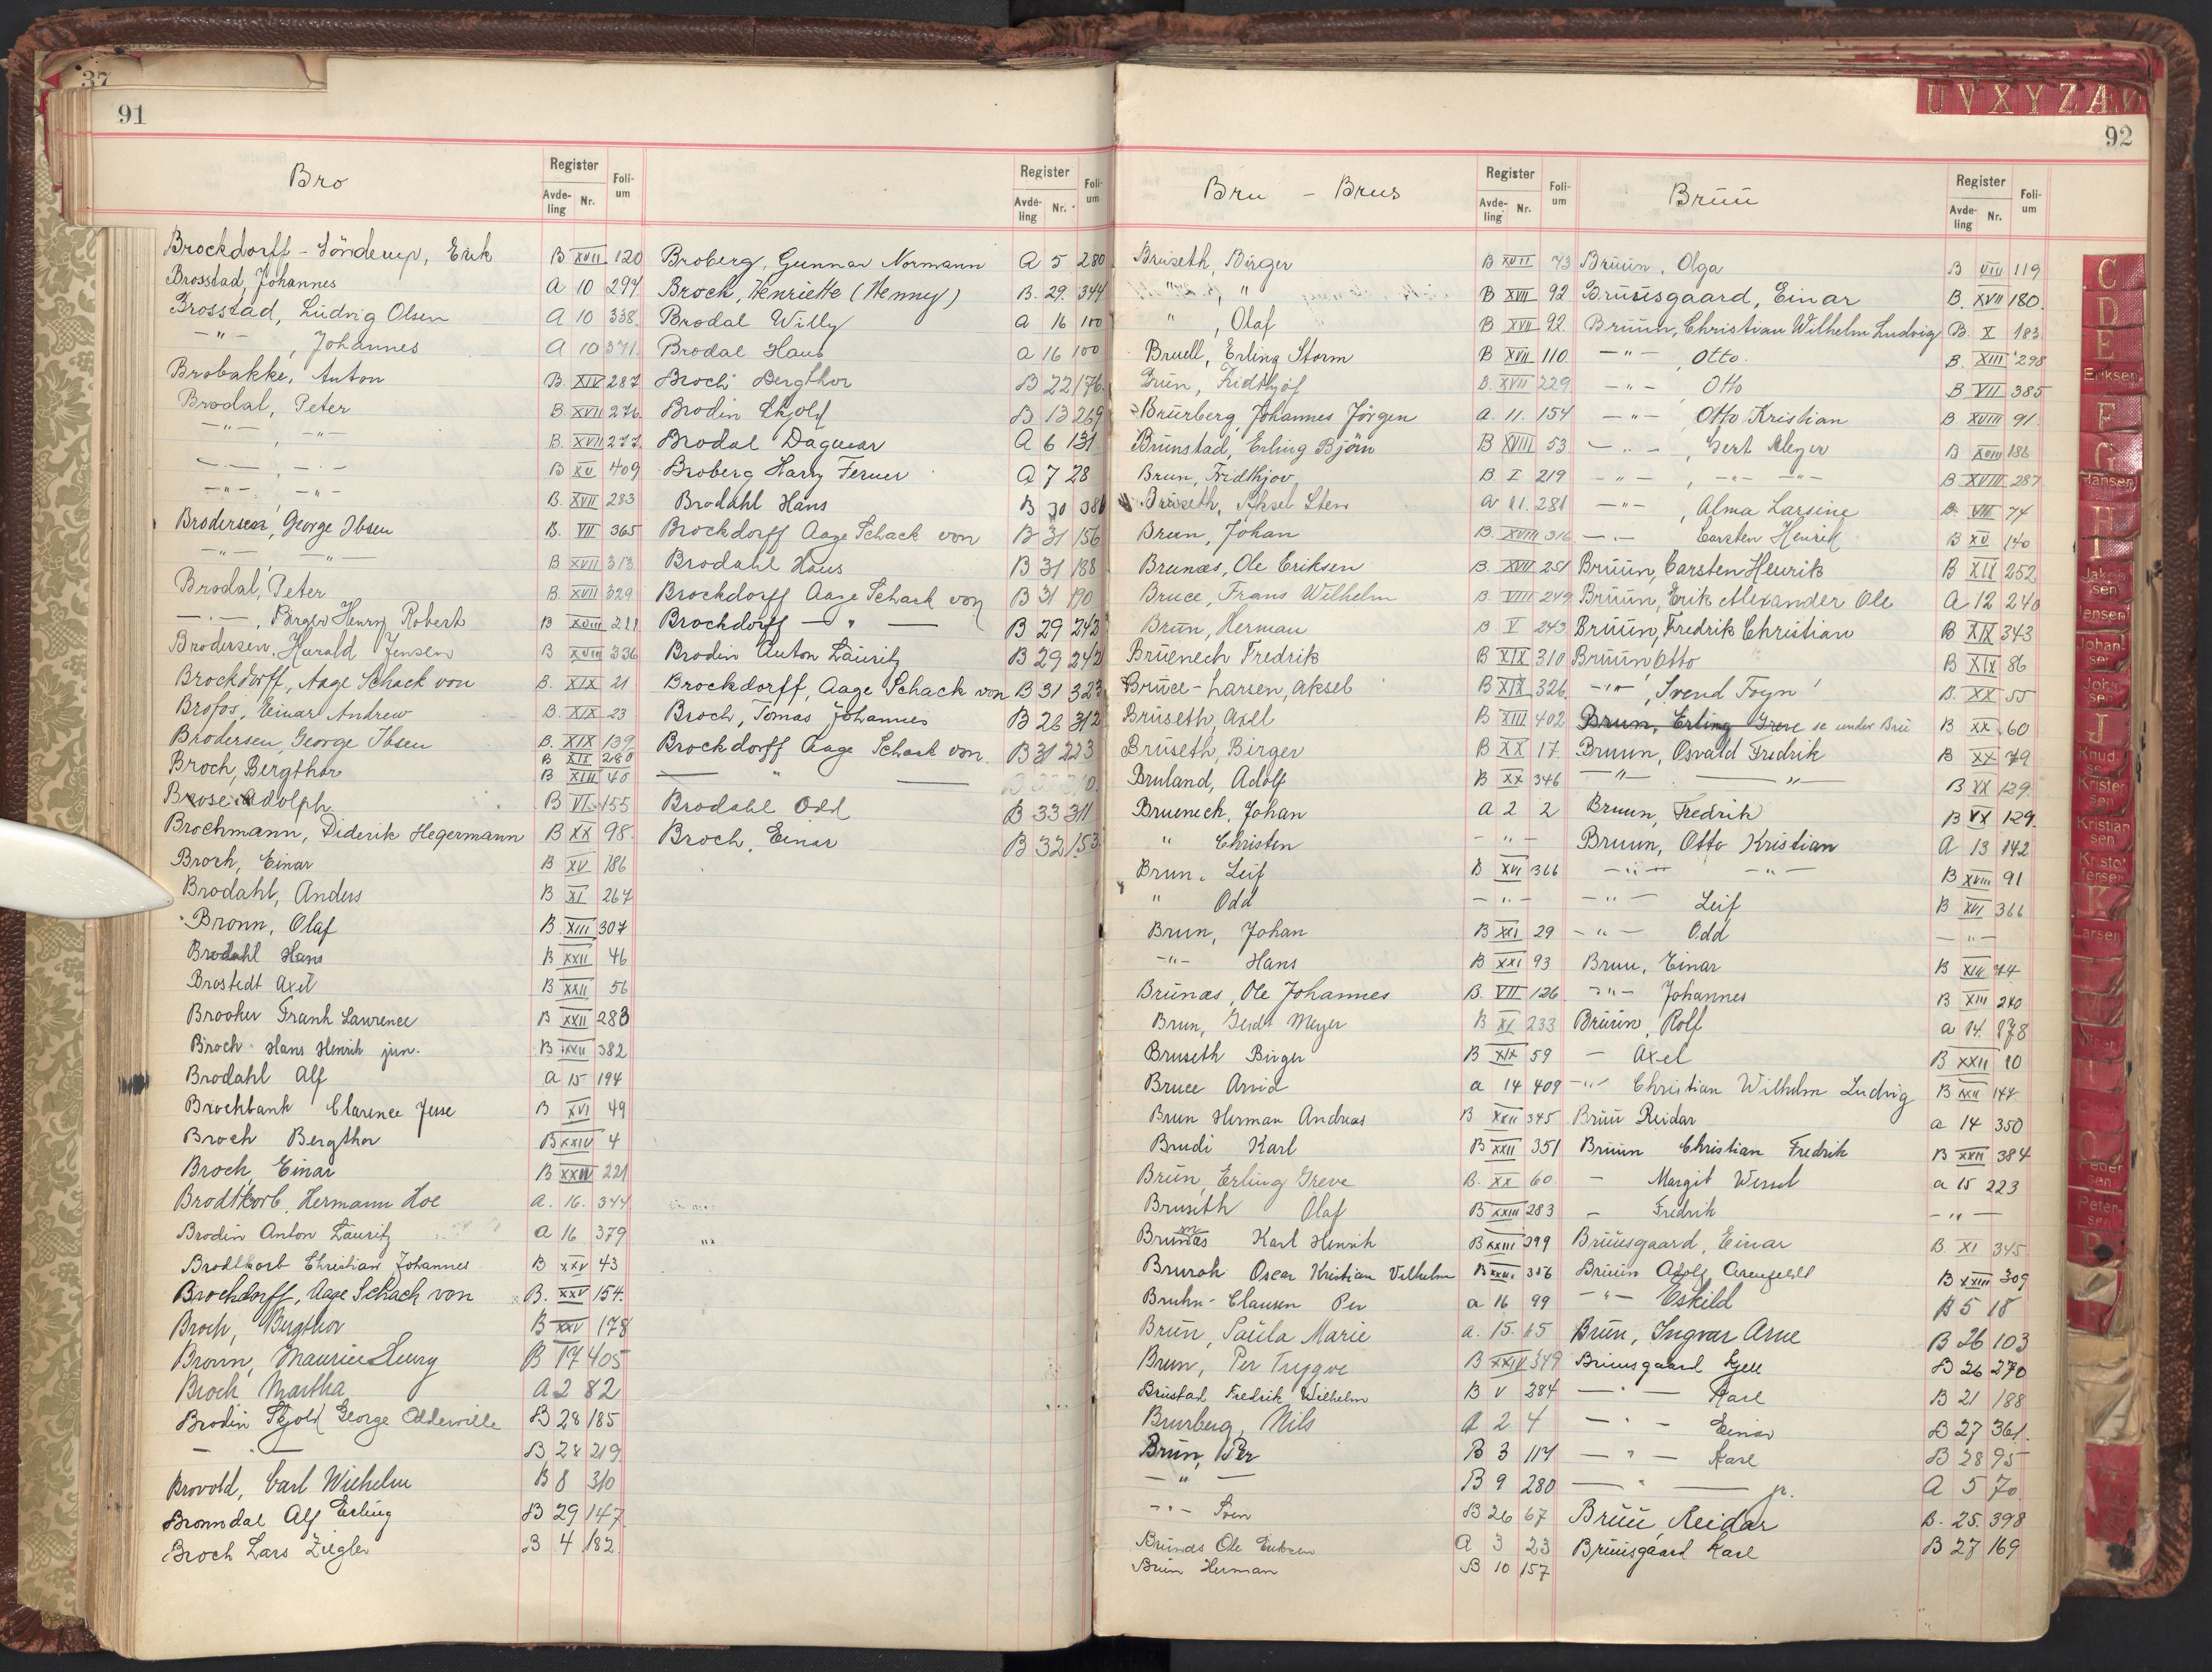 37
91
Bro
Register
Avde-ling Nr.
Foli-um
Brockdorff - Sönderup, Erik B XVII 120
Brosstad, Johannes A 10 297
Brosstad, Ludvig Olsen A 10 338
— " — , Johannes A 10 371
Brobakke, Anton B. XIV 287
Brodal, Peter B. XVII 276
— " — , — " — B. XVII 277
— " — , — " — B XV 409
— " — , — " — B. XVII 283
Brodersen, George Ibsen B. VII 365
— " — — " — B XVII 313
Brodal, Peter B. XVII 329
— " — , Birger Henry Robert B XVIII 211
Brodersen, Harald Jensen B XVIII 336
Brockdorff, Aage Schack von B. XIX 21
Brofos, Einar Andrew B. XIX 23
Brodersen, George Ibsen B. XIX 139
B XIX 280
Broch, Bergthor B XIII 40
Brose Adolph B VI 155
Brochmann, Diderik Hegermann B XX 98
Broch, Einar B XV 186
Brodahl, Anders B XI 267
Bronn, Olaf B. XIII 307
Brodahl Hans B XXII 46
Brostedt Axel B XXII 56
Brooker Frank Lawrence B XXII 288
Broch Hans Henrik jun. B XXII 382
Brodahl Alf a 15 194
Brochbank Clarence Jesse B XVI 49
Broch Bergthor B XXIV 4
Broch, Einar B XXIV 221
Brodtkorb, Hermann Hoe A. 16. 344
Brodin Anton Lauritz a 16 379
Brodtkorb Christian Johannes B XXV 43
Brockdorff, Aage Schack von B. XXV 154.
Broch, Bergthor B XXV 178
Bronn, Maurice Henry B 17 405
Broch Martha A 2 82
Brodin Skjold George Odderville B 28 185
— " — B 28 219
Brovold, Carl Wilhelm B 8 310
Bronndal Alf Erling B 29 147
Broch Lars Ziegler B 4 182
Register
Avde-ling Nr.
Foli-um
Broberg, Gunnar Normann A 5 280
Broch, Henriette (Henny) B. 29. 344
Brodal Willy a 16 100
Brodal Hans a 16 100
Broch Bergthor B 22 176
Brodin Skjold B 13 269
Brodal Dagmar A 6 131
Broberg Harry Ferner A 7 28
Brodahl Hans B 30 38
Brockdorff Aage Schack von B 31 156
Brodahl Hans B 31 188
Brockdorff Aage Schack von B 31 190
Brockdorff — " — B 29 242
Brodin Anton Lauritz B 29 242
Brockdorff, Aage Schack von B 31 323
Broch, Tomas Johannes B 26 312
Brockdorff Aage Schack von. B 31 223
— " —
Brodahl Odd B 33 311
Broch, Einar B 32 153
92
Bru - Brus
Register
Avde-ling Nr.
Foli-um
Bruseth, Birger B XVII 73
" , " B XVII 92
" , Olaf B XVII 92
Bruell, Erling Storm B XVII 110
Brun, Fridthjof B. XVII 229
Brurberg, Johannes Jörgen a. 11. 154
Brunstad, Erling Björn B XVIII 53
Brun, Fridthjov B. I 219
Bruseth, Aksel Sten a 11. 281
Brun, Johan B. XVIII 316
Brunæs, Ole Eriksen B. XVII 251
Bruce, Frans Wilhelm B VIII 249
Brun, Herman B V 243
Bruenech Fredrik B XIX 310
Bruce-Larsen, Aksel B XIX 326
Bruseth, Axel B XIII 402
Bruseth, Birger B XX 17
Bruland, Adolf B XX 346
Brueneck, Johan a 2 2
" Christen - " -
Brun, Leif B XVI 366
" Odd - " -
Brun, Johan B XXI 29
- " - Hans B XXI 93
Brunæs, Ole Johannes B. VII 126
Brun, Gerdt Meyer B XI 233
Bruseth Birger B XIX 59
Bruce Arvid a 14 409
Brun Herman Andreas B XXII 345
Brudi Karl B XXII 351
Brun, Erling Greve B. XX 60
Bruseth Olaf B XXIII 283
Brunæs Karl Henrik B XXIII 299
Oscar Kristian Vilhelm 316
Bruhn-Clausen Per a 16 99
Brun, Paula Marie a. 15. 65
Brun, Per Tryggve B XXIV 349
Brustad Fredrik Wilhelm B V 284
Brurberg, Nils A 2 4
Brun, Per B 3 117
— " — B 9 280
- " - Sven B 26 67
Brunæs Ole Eriksen A 3 23
Brun Herman B 10 157
Bruu
Register
Avde-ling Nr.
Foli-um
Bruun, Olga B VIII 119
Bruusgaard, Einar B. XVII 180
Bruun, Christian Wilhelm Ludvig B. X 183
— " — , Otto B. XIII 298
— " — , Otto B VII 385
— " — , Otto Kristian B XVIII 91
— " — , Gert Meyer B XVIII 186
— " — , — " — B XVIII 287
— " — , Alma Larsine B. VIII 74
— " — Carsten Henrik B XV 140
Bruun, Carsten Henrik B XIX 252
Bruun, Erik Alexander Ole A 12 240
Bruun, Fredrik Christian B XIX 343
Bruun Otto B XIX 86
— " — , Svend Foyn B. XX 55
Brun, Erling Greve se under Bru B XX 60
Bruun, Osvald Fredrik B XX 79
— " — — " — B XX 129
Bruun, Fredrik B XX 129.
Bruun, Otto Kristian A 13 142
— " — — " — B XVIII 91
— " — Leif B XVI 366
— " — Odd — " —
Bruu, Einar B XII 74
— " — Johannes B XIII 240
Bruun, Rolf a 14. 178
— Axel B XXII 10
— " — Christian Wilhelm Ludvig B XXII 144
Bruu Reidar a 14 350
Bruun Christian Fredrik B XXII 384
— Margit Wessel a 15 223
— Fredrik — " —
Bruusgaard, Einar B. XI 345
Bruun Adolf Arenfeldt B XXIII 309
— " — Eskild B 5 18
Bruu, Ingvar Arne B 26 103
Bruusgaard Kjell B 26 270
— " — Karl B 21 188
— " — Einar B 27 361
— " — Karl B 28 95
— " — jr. A 5 70
Bruu, Reidar B. 25. 398
Bruusgaard Karl B 27 169
U V X Y Z Æ Ø
C
D
E
Eriksen
F
G
Hansen
H
I
Jakobsen
Jensen
Johansen
J
Knudsen
Kristensen
Kristiansen
Kristoffersen
K
Larsen
Pedersen
Petersen